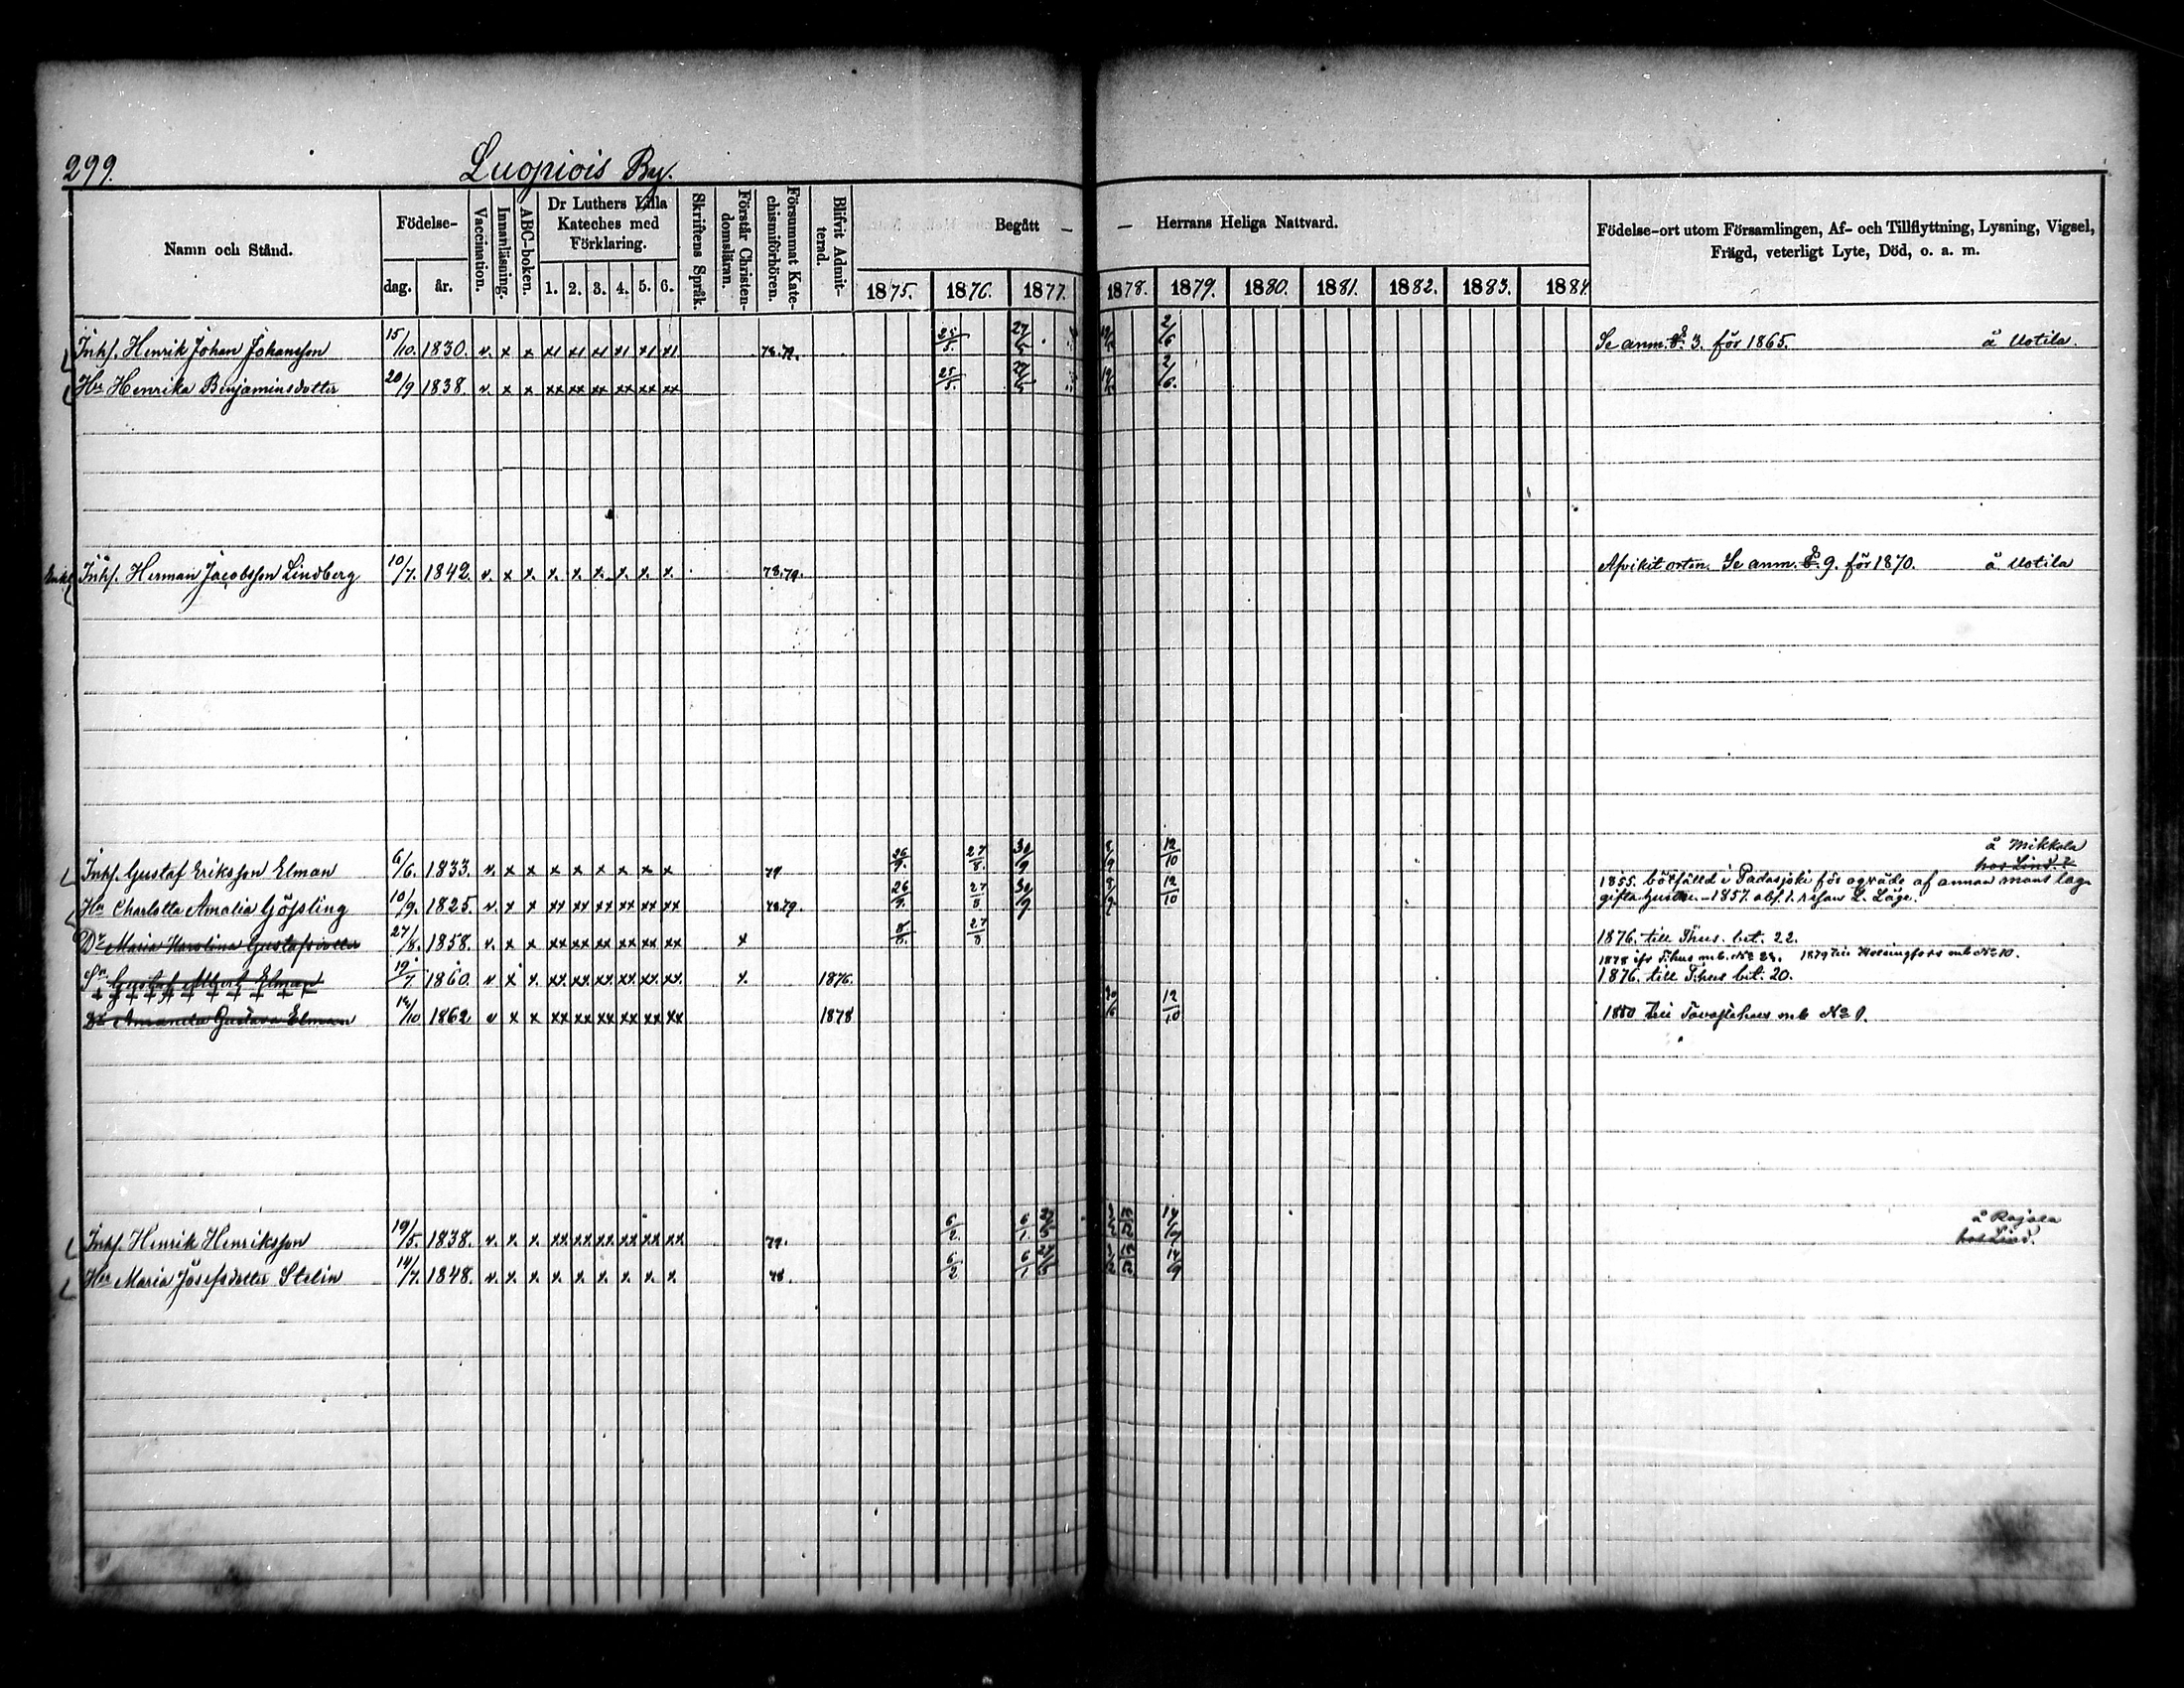 299.
Luopiois By.
Namn och Stånd.
Födelse-
dag.
år.
Vaccination.
Innanläsning.
ABC-boken.
Dr Luthers Lilla
Kateches med
Förklaring.
1. 2. 3. 4. 5. 6.
Skriftens Språk.
Förstår Christen-
domsläran.
Försummat Kate-
chismiförhören.
Blifvit Admit-
terad.
Begått —
— Herrans Heliga Nattvard.
1875. 1876. 1877. 1878. 1879. 1880. 1881. 1882. 1883. 1884
Födelse-ort utom Församlingen, Af- och Tillflyttning, Lysning, Vigsel,
Frägd, veterligt Lyte, Död, o. a. m.
Inhs. Henrik Johan Johansson 15/10. 1830. v. x x x1 x1 x1 x1 x1 x1 78.79. 25/5. 2/6 Se anm. 3. för 1865. å Uotila.
Hu Henrika Benjaminsdotter 20/9 1838. v. x x xx xx xx xx xx xx 25/5. 2/6.
Enkl. Inhs. Herman Jacobsson Lindberg 10/7. 1842. v. x x. x. x. x. x. x. x. 78.79. Afvikit orten. Se anm. 9. för 1870. å Uotila
å Mikkola
Inhs. Gustaf Eriksson Elman 6/6. 1833. v. x x x x x x x x 79 26/9. 27/8. 30/9 8/9 12/10 hos Lind.
1855. bötfälld i Padasjoki för
Hu Charlotta Amalia Gössling 10/9. 1825. v. x x xx xx xx xx xx xx 78.79. 26/9. 27/8 30/9 12/10 gifta hustru. - 1857. abs. 1. resan L. Läge.
Dr Maria Karolina Gustafsdotter 27/8. 1858. v. x x xx xx xx xx xx xx x 8/8. 27/8 1876. till Thus. bet. 22.
1878 ifr T:hus m.b. No 23. 1879 till Helsingfors mb No 10.
Sn Gustaf Albert Elman 19/7 1860. v x x. xx. xx. xx. xx. xx. xx. x. 1876. 1876. till T:hus bet. 20.
Dr Amanda Gustava Elman 1862 v x x xx xx xx xx xx xx 1878 30/6 12/10 1880 till Tavastehus mb No 1.
å Rajala
Inhs. Henrik Henriksson 19/5. 1838. v. x. x. xx xx xx xx xx xx 79. 6/2. 6/1 hos Lind.
Hu Maria Josefsdotter Stelin 14/7. 1848. v. x. x. x. x. x. x. x. x. 78. 6/2 6/1 14/9